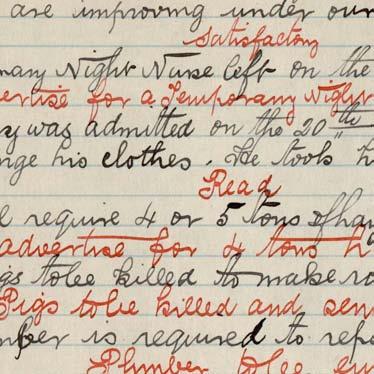 are improving under our
satisfactory
rary Night Nurse left on the
ertise for a Temporary Night
y was admitted on the 20th
nge his clothes. He took h
Read
l require 4 or 5 tons of hay
advertise for 4 tons h
gs to be killed to make ro
Pigs to be killed and sen
ber is required to rep
Plumber to be